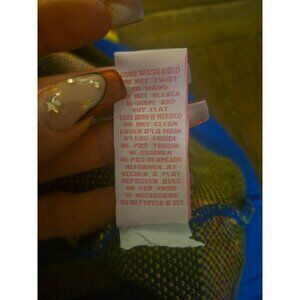 HAND WASH COLD
DO NOT TWIST
OR WRING
DO NOT BLEACH
RESHAPE AND
DRY FLAT
COOL IRON IF NEEDED
OR DRY CLEAN
LAVER A LA MAIN
A L'EAU FROIDE
NE PAS TORDRE
NI ESSORER
NE PAS BLANCHIR
REFORMER AT
SECHER A PLAT
REPASSER AVEC
UN FER FROID
SI NECESSAIRE
OU NETTOYER A SEC